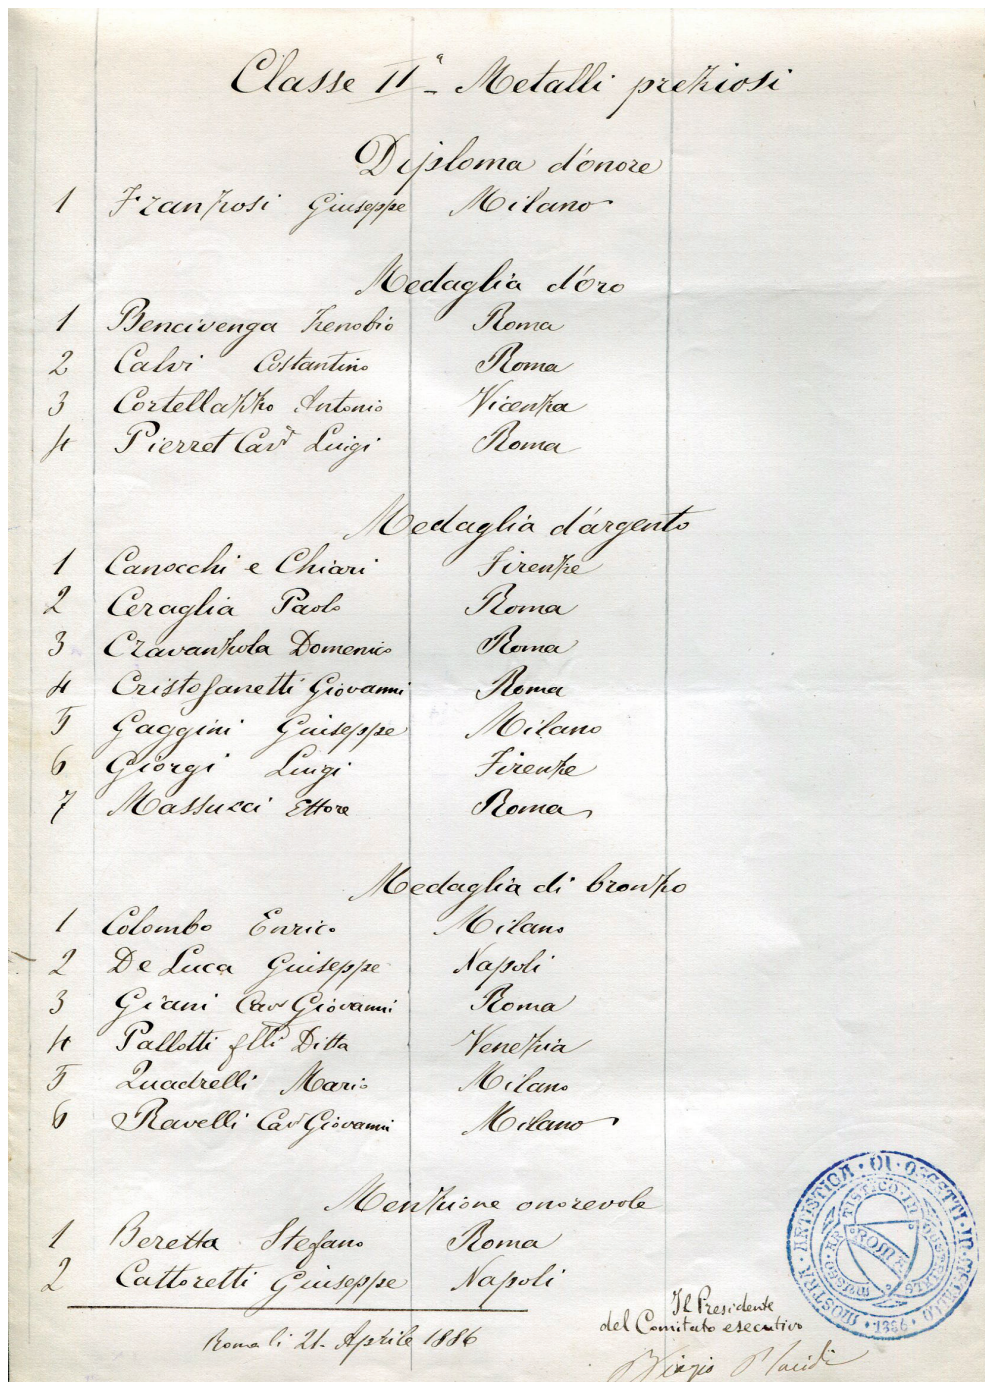 Classe IIª - Metalli preziosi
Diploma d'onore
1 Franzosi Giuseppe Milano
Medaglia d'oro
1 Bencivenga Zenobio Roma
2 Calvi Costantino Roma
3 Cortellazzo Antonio Vicenza
4 Pierret Cavr Luigi Roma
Medaglia d'argento
1 Canocchi e Chiari Firenze
2 Ceraglia Paolo Roma
3 Cravanzola Domenico Roma
4 Cristofanetti Giovanni Roma
5 Gaggini Giuseppe Milano
6 Giorgi Luigi Firenze
7 Massucci Ettore Roma
Medaglia di bronzo
1 Colombo Enrico Milano
2 De Luca Giuseppe Napoli
3 Giani Cavr Giovanni Roma
4 Pallotti flli Ditta Venezia
5 Quadrelli Mario Milano
6 Ravelli Cavr Giovanni Milano
Menzione onorevole
1 Beretta Stefano Roma
2 Cattoretti Giuseppe Napoli
Roma li 21 Aprile 1886
Il Presidente
del Comitato esecutivo
Biagio Placidi
MOSTRA · ARTISTICA · DI · OGGETTI · IN · METALLO · 1886 ·
MUSEO · ARTISTICO · INDUSTRIALE
ROMA